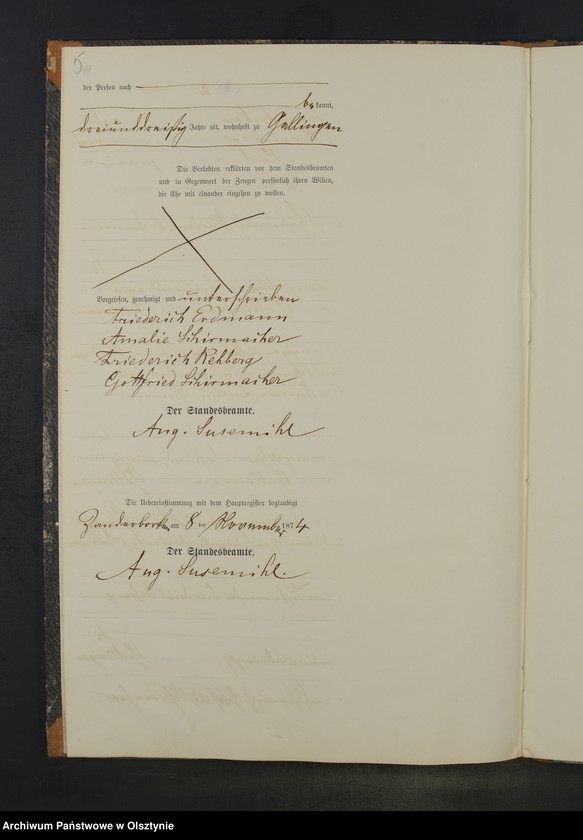 5
der Person nach
be kannt,
dreiunddreißig Jahre alt, wohnhaft zu Gallingen
Die Verlobten erklärten vor dem Standesbeamten
und in Gegenwart der Zeugen persönlich ihren Willen,
die Ehe mit einander eingehen zu wollen.
Vorgelesen, genehmigt und unterschrieben
Friederich Erdmann
Amalie Schirmacher
Friederich Rehberg
Gottfried Schirmacher
Der Standesbeamte.
Aug. Susemihl
Die Uebereinstimmung mit dem Hauptregister beglaubigt
am 8 ten November 1874
Der Standesbeamte.
Aug. Susemihl.
Archiwum Państwowe w Olsztynie